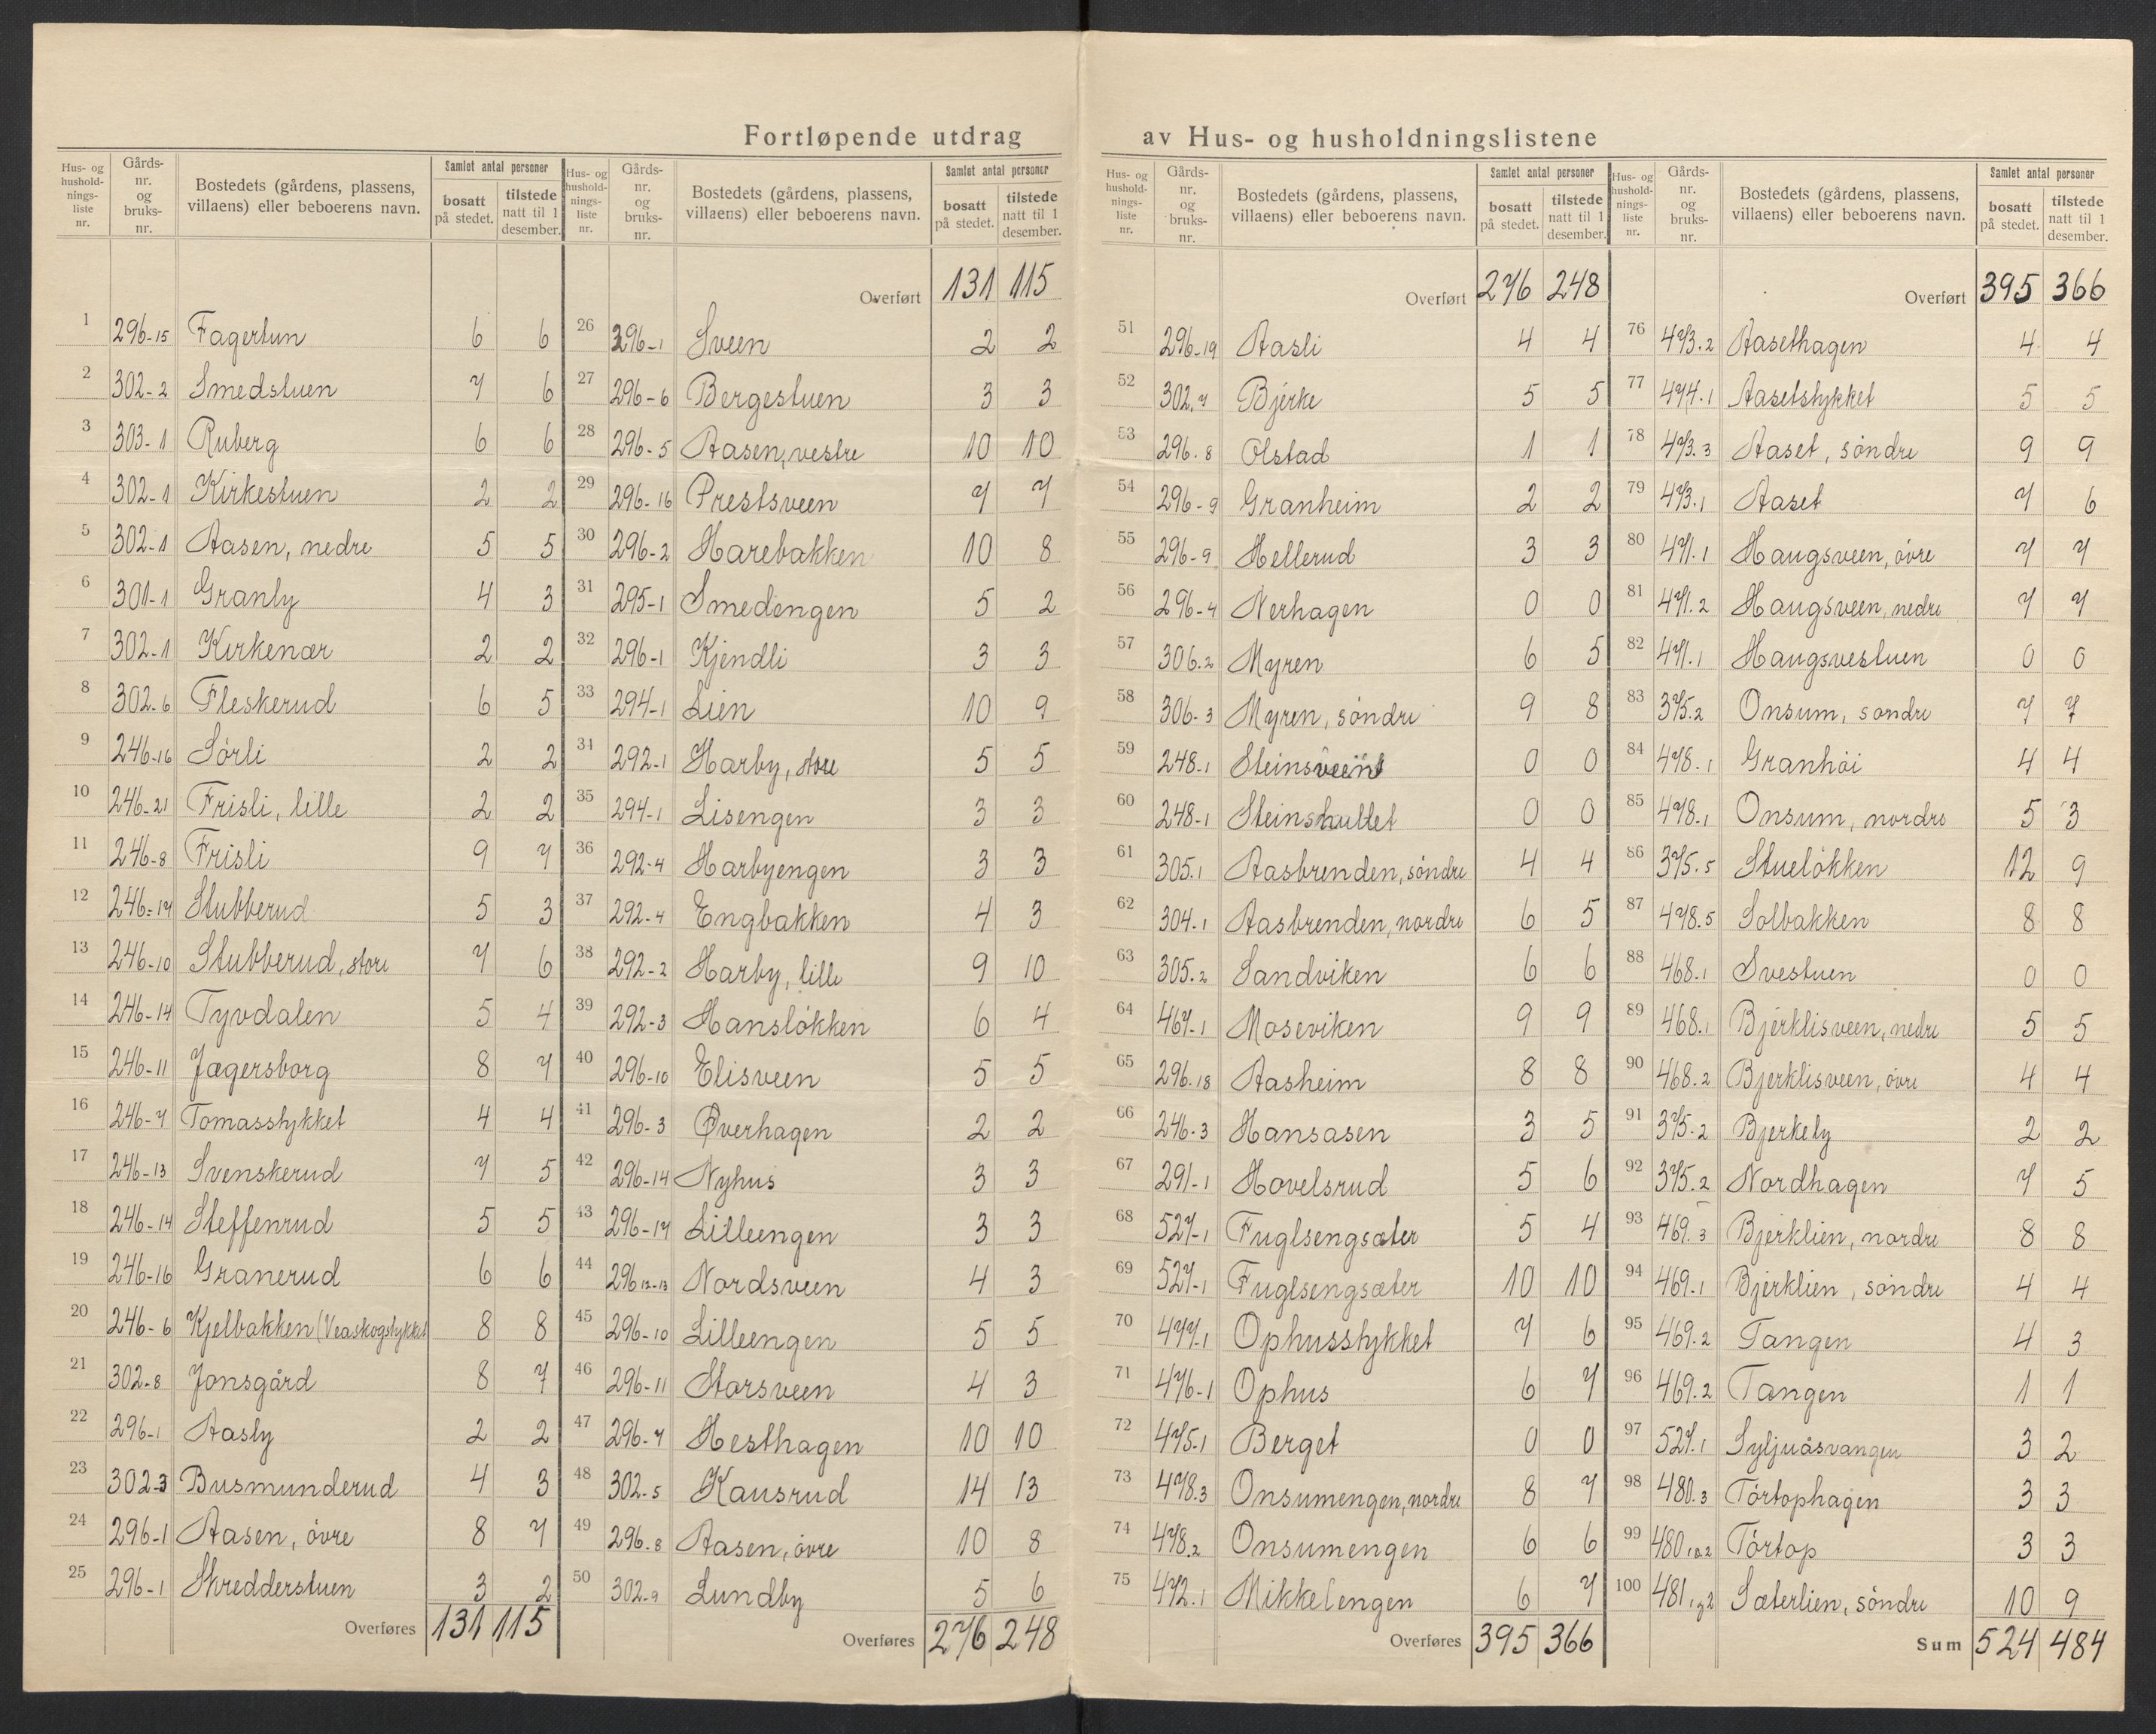 Fortløpende utdrag av Hus- og husholdningslistene
Hus- og husholdnings-liste nr. | Gårds-nr. og bruks-nr. | Bostedets (gårdens, plassens, villaens) eller beboerens navn. | Samlet antal personer bosatt på stedet. | tilstede natt til 1 desember.
1 296-15 Fagertun 6 6
2 302-2 Smedstuen 7 6
3 303-1 Ruberg 6 6
4 302-1 Kirkestuen 2 2
5 302-1 Aasen, nedre 5 5
6 301-1 Granly 4 3
7 302-1 Kirkenær 2 2
8 302-6 Fleskerud 6 5
9 246-16 Sörli 2 2
10 246-21 Frisli, lille 2 2
11 246-8 Frisli 9 7
12 246-17 Stubberud 5 3
13 246-10 Stubberud, store 7 6
14 246-14 Tyvdalen 5 4
15 246-11 Jægersborg 8 7
16 246-7 Tomasstykket 4 4
17 246-13 Svenskerud 7 5
18 246-14 Steffenrud 5 5
19 246-16 Granerud 6 6
20 246-6 Kjelbakken (Veaskogstykket 8 8
21 302-8 Jonsgård 8 7
22 296-1 Aasly 2 2
23 302-3 Busmunderud 4 3
24 296-1 Aasen, övre 8 7
25 296-1 Skredderstuen 3 2
Overføres 131 115
Hus- og husholdnings-liste nr. | Gårds-nr. og bruks-nr. | Bostedets (gårdens, plassens, villaens) eller beboerens navn. | Samlet antal personer bosatt på stedet. | tilstede natt til 1 desember.
Overført 131 115
26 296-1 Sveen 2 2
27 296-6 Bergestuen 3 3
28 296-5 Aasen, vestre 10 10
29 296-16 Prestsveen 7 7
30 296-2 Harebakken 10 8
31 295-1 Smedengen 5 2
32 296-1 Kjendli 3 3
33 294-1 Lien 10 9
34 292-1 Harby, store 5 5
35 294-1 Lisengen 3 3
36 292-4 Harbyengen 3 3
37 292-4 Engbakken 4 3
38 292-2 Harby, lille 9 10
39 292-3 Hanslökken 6 4
40 296-10 Elisveen 5 5
41 296-3 Øverhagen 2 2
42 296-14 Nyhus 3 3
43 296-17 Lilleengen 3 3
44 296 12-13 Nordsveen 4 3
45 296-10 Lilleengen 5 5
46 296-11 Storsveen 4 3
47 296-7 Hesthagen 10 10
48 302-5 Kausrud 14 13
49 296-8 Aasen, övre 10 8
50 302-9 Lundby 5 6
Overføres 276 248
Hus- og husholdnings-liste nr. | Gårds-nr. og bruks-nr. | Bostedets (gårdens, plassens, villaens) eller beboerens navn. | Samlet antal personer bosatt på stedet. | tilstede natt til 1 desember.
Overført 276 248
51 296-19 Aasli 4 4
52 302.7 Bjerke 5 5
53 296.8 Olstad 1 1
54 296-9 Granheim 2 2
55 296-9 Hellerud 3 3
56 296-4 Nerhagen 0 0
57 306.2 Myren 6 5
58 306-3 Myren, söndre 9 8
59 248-1 0 0
60 248-1 0 0
61 305.1 Aasbrenden, söndre 4 4
62 304-1 Aasbrenden, nordre 6 5
63 305.2 Sandviken 6 6
64 467-1 Moseviken 9 9
65 296.18 Aasheim 8 8
66 246-3 Hansasen 3 5
67 291-1 Hovelsrud 5 6
68 527-1 Fuglsengsæter 5 4
69 527-1 Fuglsengsæter 10 10
70 477-1 Ophusstykket 7 6
71 476-1 Ophus 6 7
72 475-1 Berget 0 0
73 478.3 Onsumengen, nordre 8 7
74 478.2 Onsumengen 6 6
75 472.1 Mikkelengen 6 7
Overføres 395 366
Hus- og husholdnings-liste nr. | Gårds-nr. og bruks-nr. | Bostedets (gårdens, plassens, villaens) eller beboerens navn. | Samlet antal personer bosatt på stedet. | tilstede natt til 1 desember.
Overført 395 366
76 473.2 Aasethagen 4 4
77 474.1 Aasetstykket 5 5
78 473.3 Aaset, söndre 9 9
79 473.1 Aaset 7 6
80 471.1 Haugsveen, övre 7 7
81 471.2 Haugsveen, nedre 7 7
82 471.1 Haugsvestuen 0 0
83 375.2 Onsum, sondre 7 7
84 478.1 Granhöi 4 4
85 478.1 Onsum, nordre 5 3
86 375.5 Stuelökken 12 9
87 478.5 Solbakken 8 8
88 468.1 Svestuen 0 0
89 468.1 Bjerklisveen, nedre 5 5
90 468.2 Bjerklisveen, övre 4 4
91 375-2 Bjerkely 2 2
92 375.2 Nordhagen 7 5
93 469.3 Bjerklien, nordre 8 8
94 469.1 Bjerklien, söndre 4 4
95 469.2 Tangen 4 3
96 469.2 Tangen 1 1
97 527.1 Syljuåsvangen 3 2
98 480.3 Törtophagen 3 3
99 480 Törtop 3 3
100 481 Sæterlien, söndre 10 9
Sum 524 484